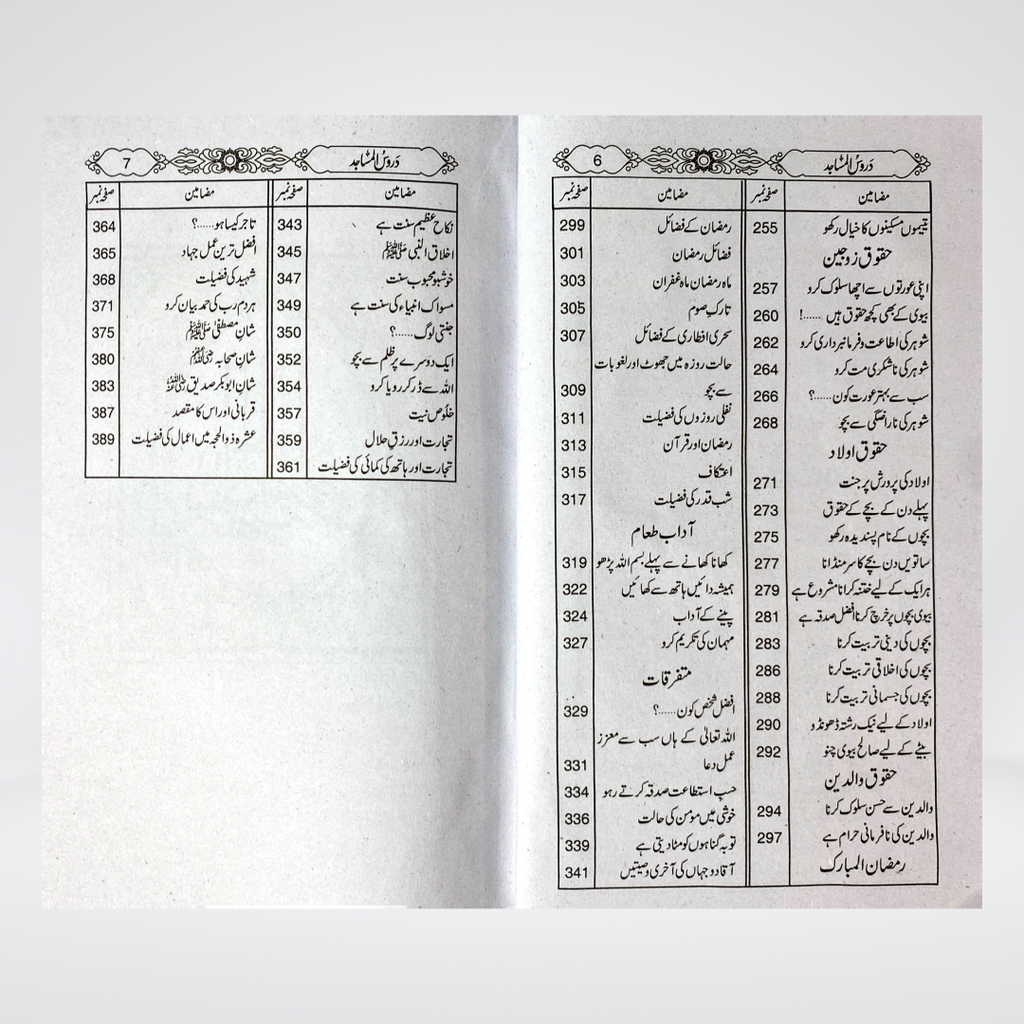 دروسُ المساجد
6
مضامین
صفحہ نمبر
یتیموں مسکینوں کا خیال رکھو
255
حقوق زوجین
اپنی عورتوں سے اچھا سلوک کرو
257
بیوی کے بھی کچھ حقوق ہیں ......!
260
شوہر کی اطاعت و فرمانبرداری کرو
262
شوہر کی ناشکری مت کرو
264
سب سے بہتر عورت کون......؟
266
شوہر کی ناراضگی سے بچو
268
حقوق اولاد
اولاد کی پرورش پر جنت
271
پہلے دن کے بچے کے حقوق
273
بچوں کے نام پسندیدہ رکھو
275
ساتویں دن بچے کا سر منڈانا
277
ہر ایک کے لیے ختنہ کرانا مشروع ہے
279
بیوی بچوں پر خرچ کرنا افضل صدقہ ہے
281
بچوں کی دینی تربیت کرنا
283
بچوں کی اخلاقی تربیت کرنا
286
بچوں کی جسمانی تربیت کرنا
288
اولاد کے لیے نیک رشتہ ڈھونڈو
290
بیٹے کے لیے صالح بیوی چنو
292
حقوق والدین
والدین سے حسن سلوک کرنا
294
والدین کی نافرمانی حرام ہے
297
رمضان المبارک
مضامین
صفحہ نمبر
رمضان کے فضائل
299
فضائل رمضان
301
ماہ رمضان ماہ غفران
303
تارک صوم
305
سحری افطاری کے فضائل
307
حالت روزہ میں جھوٹ اور لغویات
سے بچو
309
نفلی روزوں کی فضیلت
311
رمضان اور قرآن
313
اعتکاف
315
شب قدر کی فضیلت
317
آداب طعام
کھانا کھانے سے پہلے بسم اللہ پڑھو
319
ہمیشہ دائیں ہاتھ سے کھائیں
322
پینے کے آداب
324
مہمان کی تکریم کرو
327
متفرقات
افضل شخص کون......؟
329
اللہ تعالیٰ کے ہاں سب سے معزز
عمل دعا
331
حسبِ استطاعت صدقہ کرتے رہو
334
خوشی میں مومن کی حالت
336
توبہ گناہوں کو مٹا دیتی ہے
339
آقا دو جہاں کی آخری وصیتیں
341
دروسُ المساجد
7
مضامین
صفحہ نمبر
نکاح عظیم سنت ہے
343
اخلاق النبی ﷺ
345
خوشبو محبوب سنت
347
مسواک انبیاء کی سنت ہے
349
جنتی لوگ......؟
350
ایک دوسرے پر ظلم سے بچو
352
اللہ سے ڈر کر رویا کرو
354
خلوص نیت
357
تجارت اور رزقِ حلال
359
تجارت اور ہاتھ کی کمائی کی فضیلت
361
مضامین
صفحہ نمبر
تاجر کیسا ہو......؟
364
افضل ترین عمل جہاد
365
شہید کی فضیلت
368
ہر دم رب کی حمد بیان کرو
371
شانِ مصطفیٰ ﷺ
375
شانِ صحابہ رضی اللہ عنہم
380
شانِ ابوبکر صدیق رضی اللہ عنہ
383
قربانی اور اس کا مقصد
387
عشرہ ذوالحجہ میں اعمال کی فضیلت
389